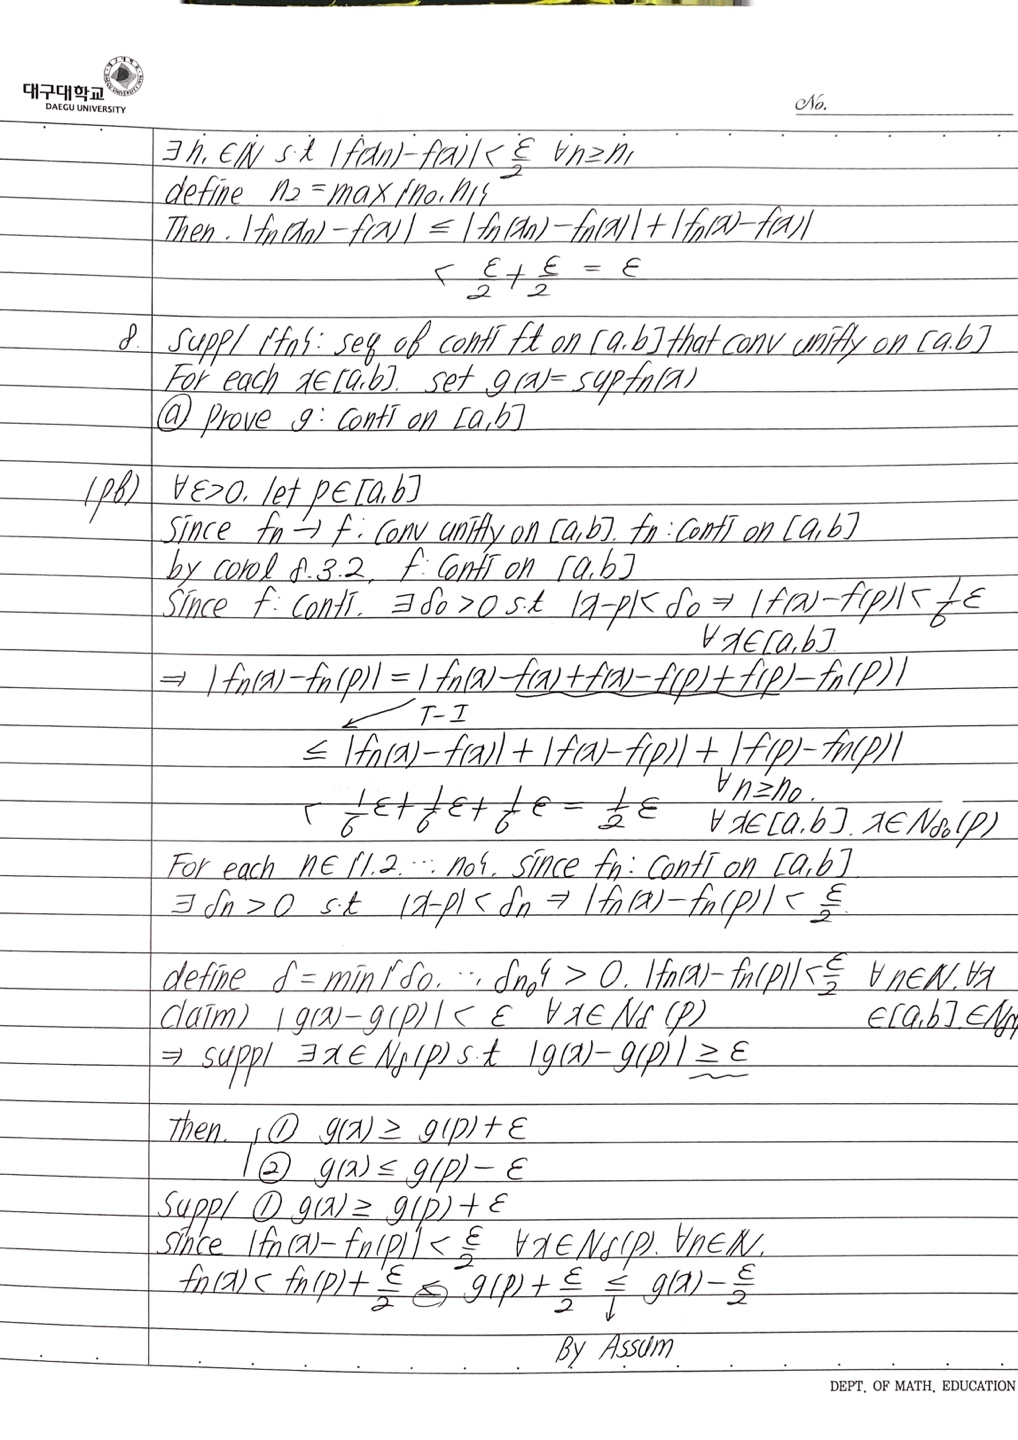 대구대학교
DAEGU UNIVERSITY
No.
∃n₁ ∈N s.t |f(xn)-f(x)| < ε/2 ∀n≥n₁
define n₂ = max{n₀, n₁}
Then. |fn(xn)-f(x)| ≤ |fn(xn)-fn(x)| + |fn(x)-f(x)|
< ε/2 + ε/2 = ε
8. Supp/ {fn}: seq of conti ft on [a,b] that conv unifly on [a,b]
For each x∈[a,b]. set g(x)= sup fn(x)
ⓐ prove g: conti on [a,b]
(pf) ∀ε>0. let p∈[a,b]
Since fn → f: conv unifly on [a,b]. fn: conti on [a,b]
by corol 8.3.2, f: conti on [a,b]
Since f: conti. ∃δ₀>0 s.t |x-p|<δ₀ ⇒ |f(x)-f(p)| < 1/6 ε
∀x∈[a,b]
⇒ |fn(x)-fn(p)| = |fn(x)-f(x)+f(x)-f(p)+f(p)-fn(p)|
T-I
≤ |fn(x)-f(x)| + |f(x)-f(p)| + |f(p)-fn(p)|
∀n≥n₀.
< 1/6 ε + 1/6 ε + 1/6 ε = 1/2 ε ∀x∈[a,b]. x∈Nδ₀(p)
For each n∈{1.2. ⋯ n₀}. since fn: conti on [a,b]
∃δn>0 s.t |x-p|<δn ⇒ |fn(x)-fn(p)| < ε/2
define δ = min{δ₀. ⋯ δn₀} > 0. |fn(x)-fn(p)| < ε/2 ∀n∈N. ∀x
claim) |g(x)-g(p)| < ε ∀x∈Nδ(p) ∈[a,b] ∈Nδ(p)
⇒ supp/ ∃x∈Nδ(p) s.t |g(x)-g(p)| ≥ ε
Then. ① g(x) ≥ g(p)+ε
② g(x) ≤ g(p)-ε
Supp/ ① g(x) ≥ g(p)+ε
since |fn(x)-fn(p)| < ε/2 ∀x∈Nδ(p). ∀n∈N.
fn(x) < fn(p)+ ε/2 ≤ g(p)+ ε/2 ≤ g(x)- ε/2
By Assum
DEPT. OF MATH. EDUCATION